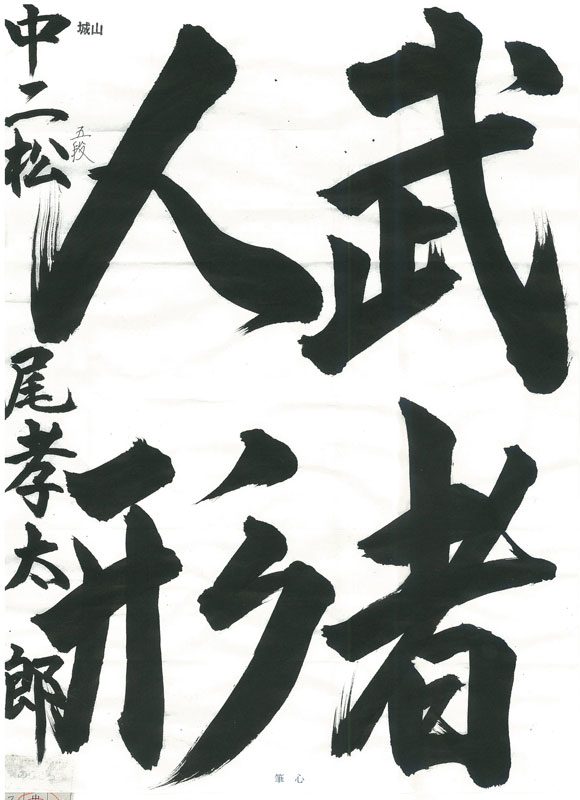 武者
人形
城山
五段
中二松尾孝太郎
筆心